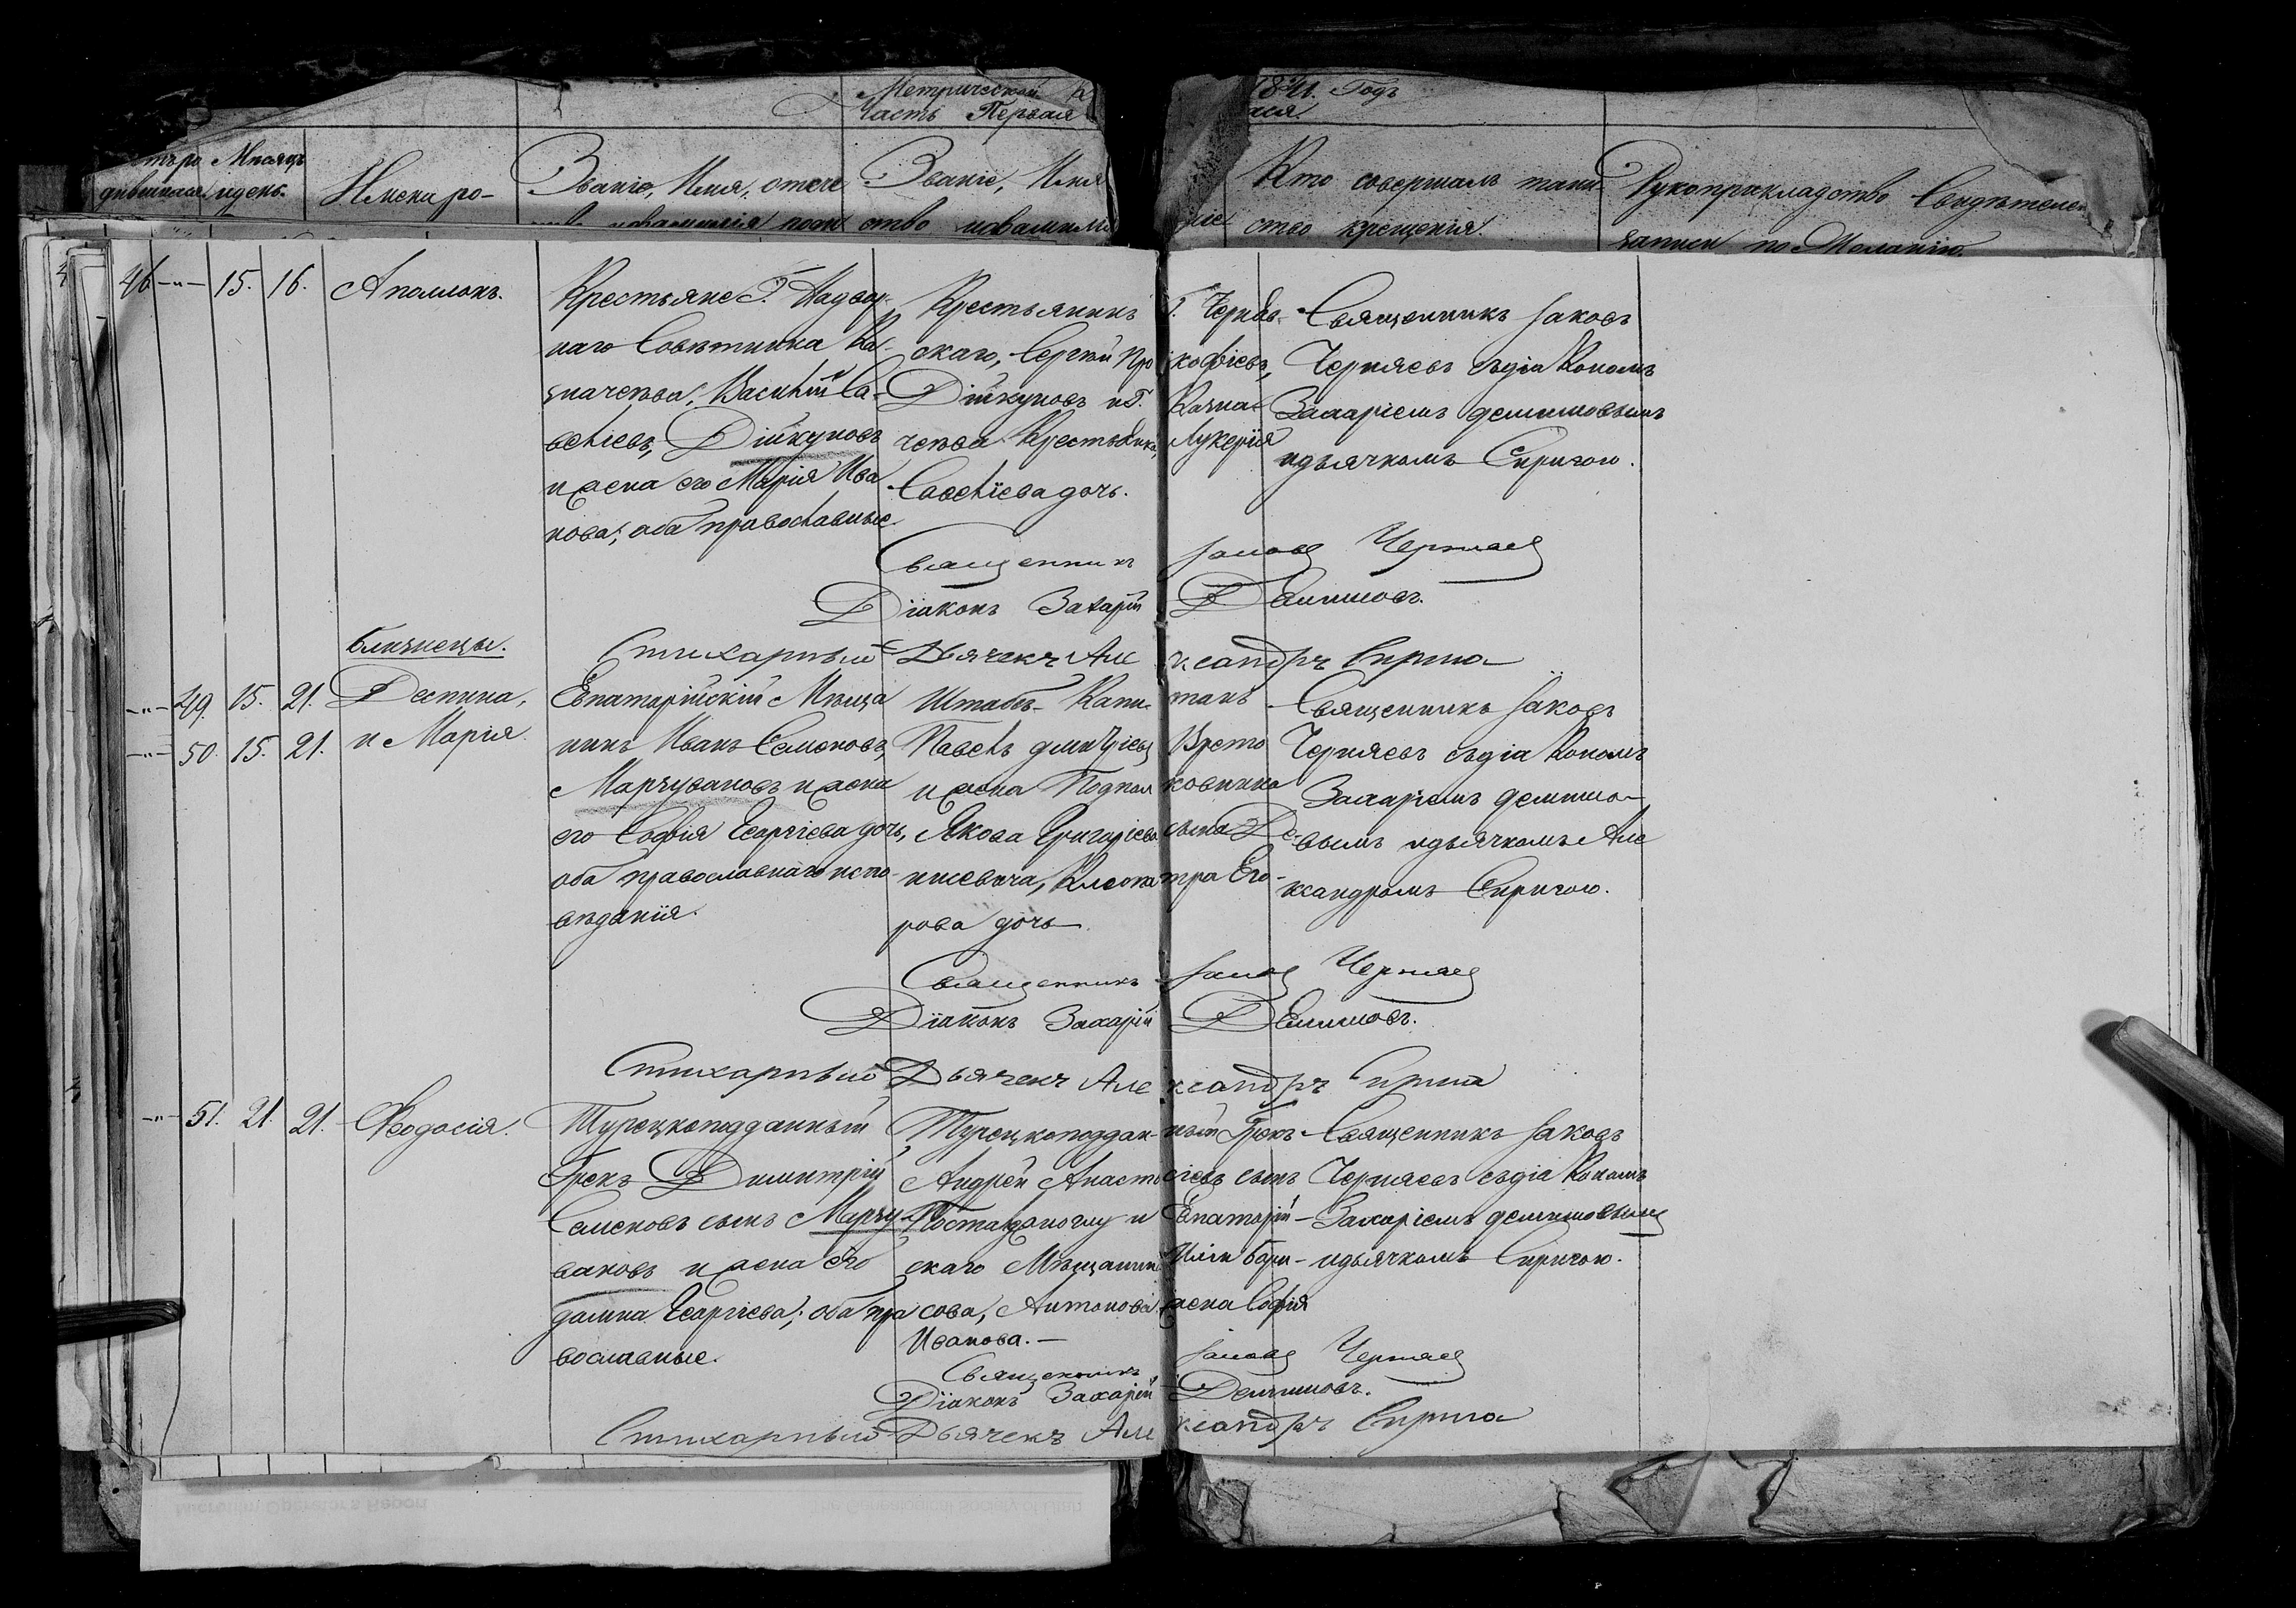 Метрической
Часть Первая
1841. Годъ
Мѣсяцъ
и день.
Имена ро-
Званіе, Имя, отече
Званіе, Имя
ство и фамилія
Кто совершалъ таин-
ство крещенія.
Рукоприкладство свидѣтелей
записи по желанію.
46 15. 16. Аполлонъ.
Крестьяне Г. Надвор-
наго Совѣтника Каз-
начеева, Василій Са-
велієвъ, Дійкуновъ
и жена его Марія Ива
нова; оба православные.
Крестьянинъ Г. Черняв-
скаго, Сергѣй Прокофіевъ,
Дійкуновъ и Г. Казна-
чеева Крестьянка, Лукерія
Савелїева дочь.
Священникъ Іаковъ
Черняевъ съ діакономъ
Захаріемъ Демишовымъ
и дьячкомъ Спригою.
Священникъ Іаковъ Черняев
Діаконъ Захарій Демишовъ.
Стихарный Дьячекъ Александръ Сприга
близнецы.
49. 15. 21. Деспина,
50. 15. 21. и Марія.
Евпаторійскій Мѣща
нинъ Иванъ Семеновъ,
Марчувановъ и жена
его Софія Георгіева дочь,
оба православнаго испо-
вѣданія.
Штабсъ-Капитанъ
Павелъ Дмитріевъ Врето
и жена Подполковника
Якова Григоріева сына Де-
нисевича, Клеопатра Его-
рова дочь
Священникъ Іаковъ
Черняевъ съ діакономъ
Захаріемъ Демишо-
вымъ и дьячкомъ Але
ксандромъ Спригою.
Священникъ Іаков Черняев
Діаконъ Захарій Демишовъ.
Стихарный Дьячекъ Александръ Сприга
51. 21. 21. Ѳеодосія.
Турецкоподданный
Грекъ Димитрій
Семеновъ сынъ Марчу-
вановъ и жена его
Домна Георгіева; оба пра
вославные.
Турецкоподданный Грекъ
Андрей Анастасіевъ сынъ
и Евпаторій-
скаго Мѣщанина Ильи Бори-
сова, Антонова жена Софія
Иванова.—
Священникъ Іаковъ
Черняевъ съ діакономъ
Захаріемъ Демишовымъ
и дьячкомъ Спригою.
Священникъ Іаковъ Черняев
Діаконъ Захарій Демишовъ.
Стихарный Дьячекъ Александръ Сприга